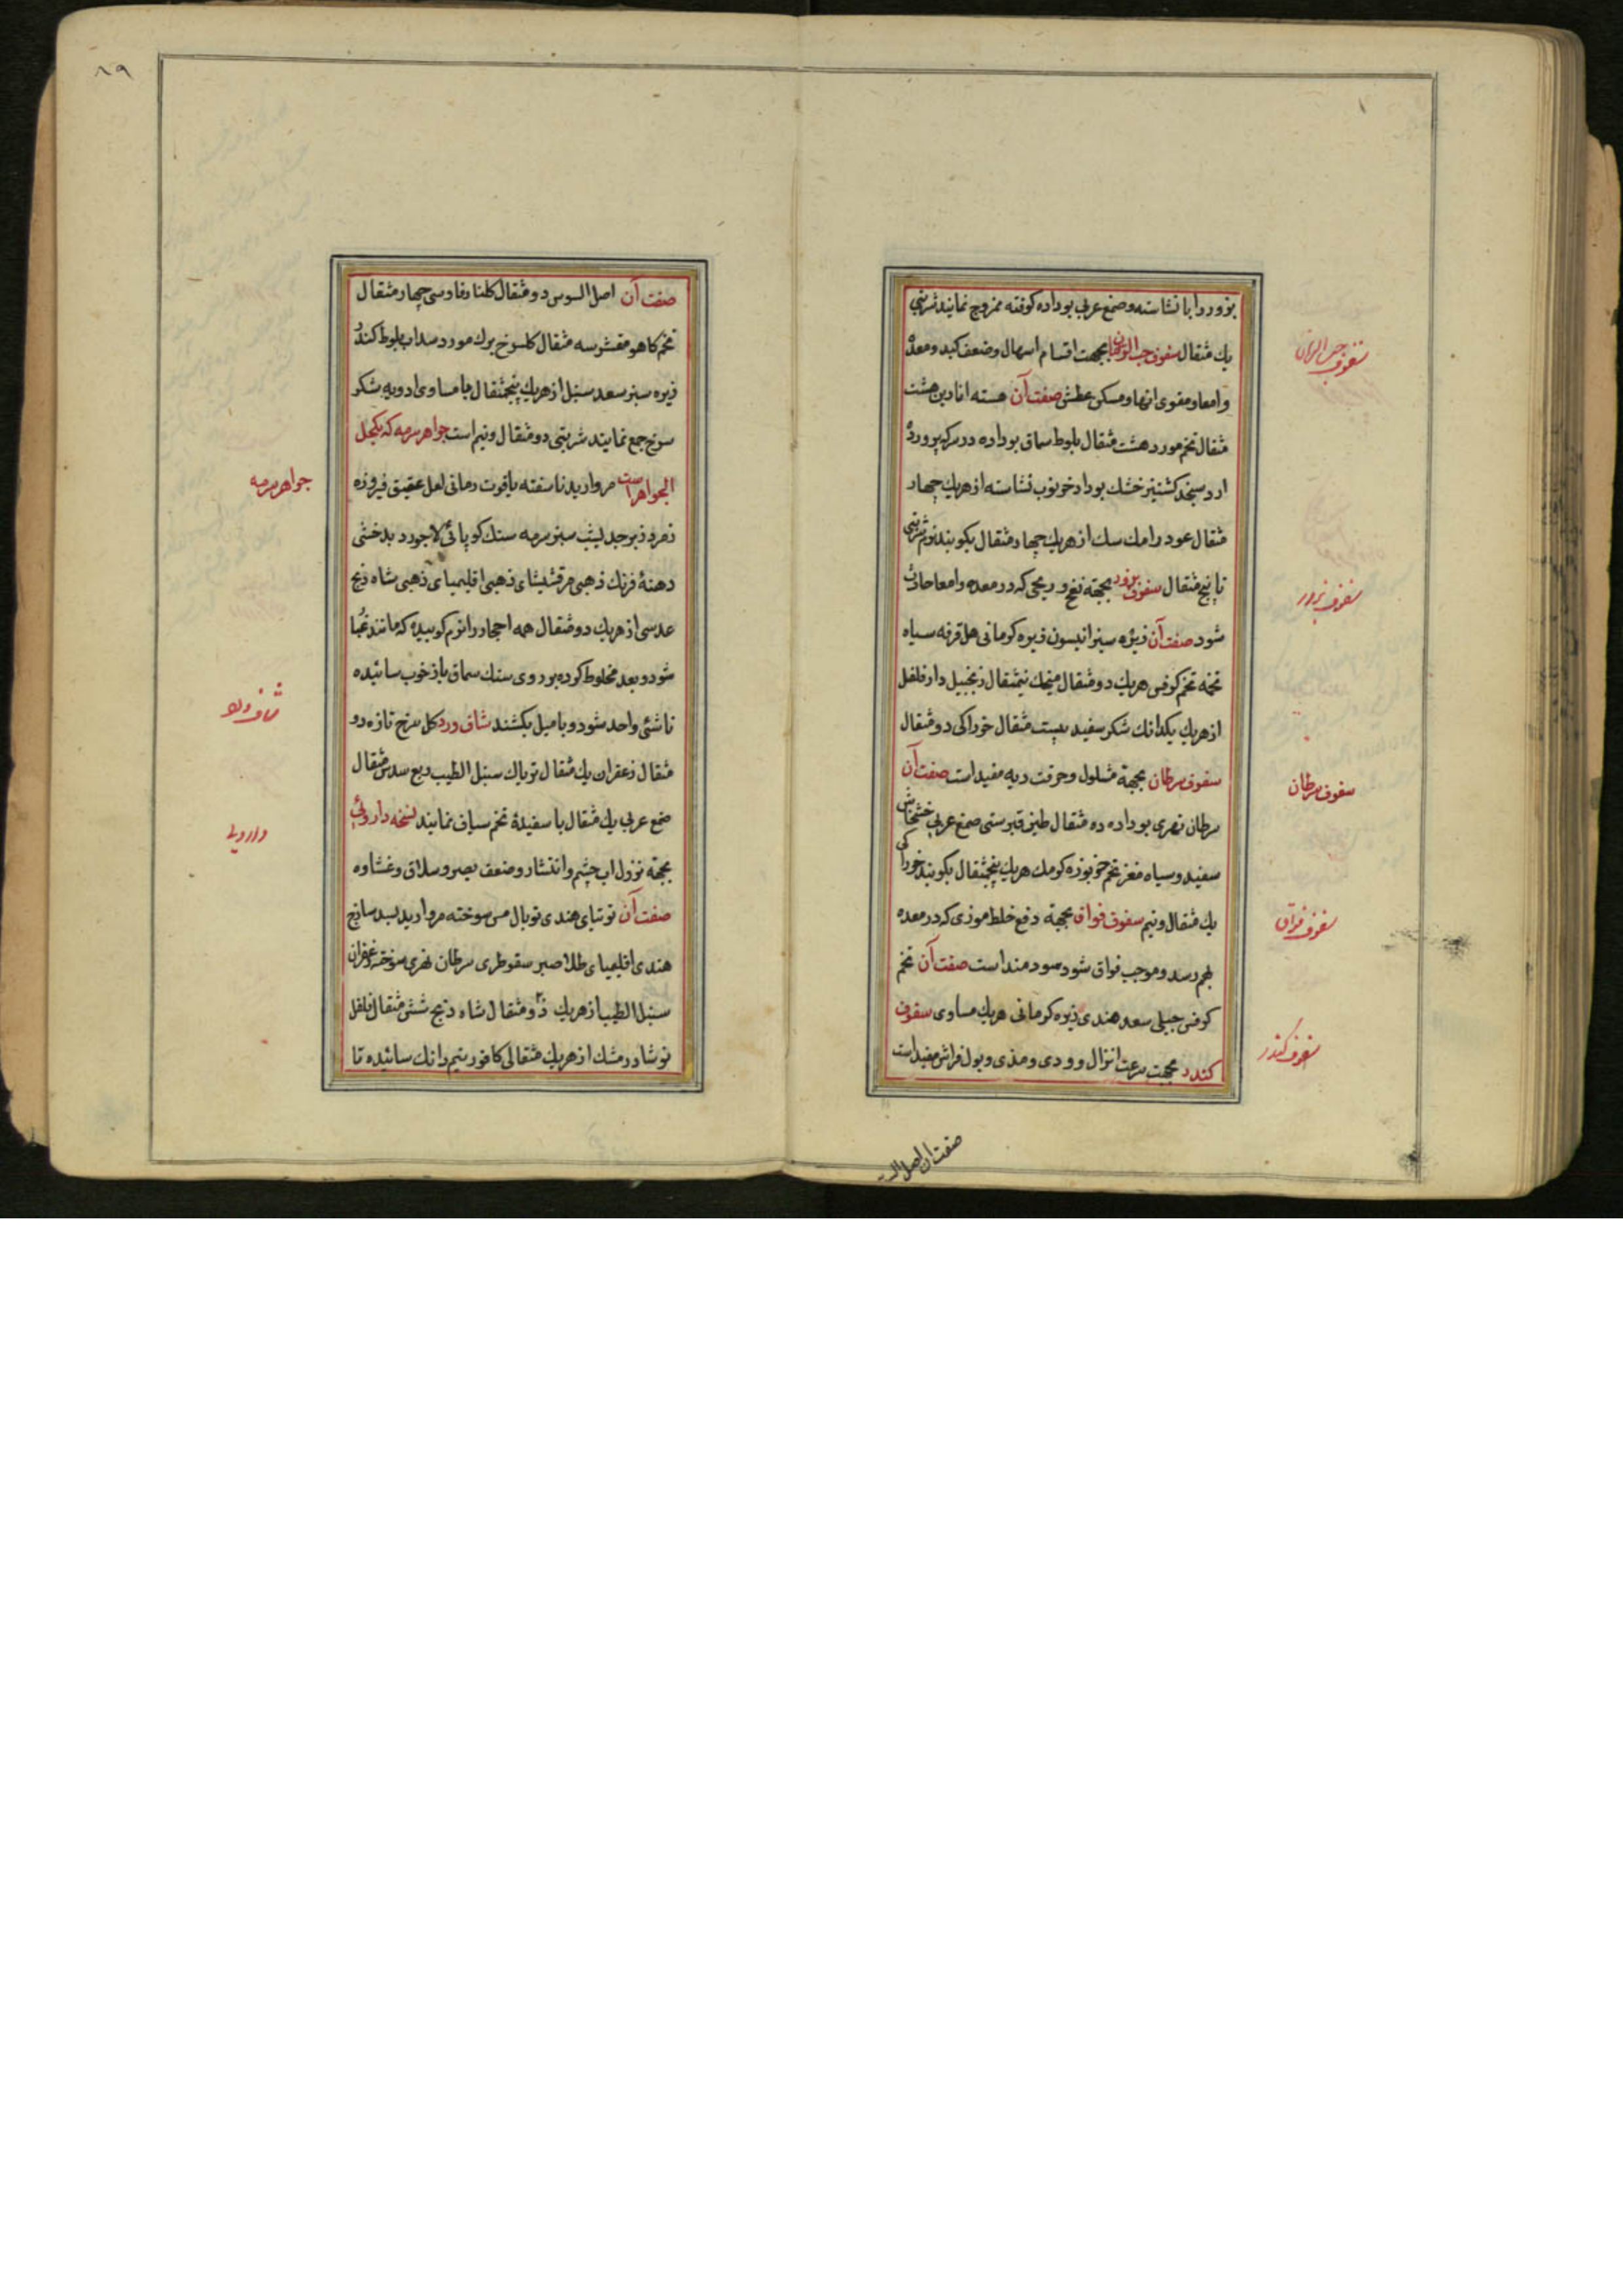 بزور را با نشاسته و صمغ عربی بوداده کوفته ممزوج نمایند شربتی
یک مثقال سفوف حب الرمان بجهت اقسام اسهال و ضعف کبد و معده
و امعا و مقوی انها و مسکن عطش صفت آن هسته انار دین هشت
مثقال تخم مورد هشت مثقال بلوط سماق بوداده در سرکه پرورده
ارد سنجد کشنیز خشک بوداد خرنوب نشاسته از هریک چهار
مثقال عود رامک سک از هریک چهار مثقال بکوبند نرم شربتی
تا پنج مثقال سفوف بزور بجهة نفخ و ریحی که در معده و امعا حادث
شود صفت آن زیره سبز انیسون زیره کرمانی هل قرفه سیاه
تخمه تخم کرفس هریک دو مثقال میخک نیمثقال زنجبیل دارفلفل
از هریک یکدانک شکر سفید بیست مثقال خوراکی دو مثقال
سفوف سرطان بجهة مسلول و حرقت ریه مفید است صفت آن
سرطان نهری بوداده ده مثقال طین قبرسی صمغ عربی خشخاش
سفید و سیاه مغز تخم خربوزه کرمک هریک پنجمثقال بکوبند خوراکی
یک مثقال و نیم سفوف فواق بجهة دفع خلط موذی که در معده
بهم رسد و موجب فواق شود سودمند است صفت آن تخم
کرفس جبلی سعد هندی زیره کرمانی هریک مساوی سفوف
کندر بجهت سرعت انزال و ودی و مذی و بول فراش مفید است
صفت ان اصل الس
سفوف حب الرمان
سفوف بزور
سفوف سرطان
سفوف فواق
سفوف کندر
۸۹
صفت آن اصل السوس دو مثقال کلنار فارسی چهار مثقال
تخم کاهو مقشر سه مثقال کلسرخ برک مورد سداب بلوط کندر
زیره سبز سعد سنبل از هریک پنجمثقال با مساوی ادویه شکر
سرخ جمع نمایند شربتی دو مثقال و نیم است جواهر سرمه که کحل
الجواهر است مروارید ناسفته یاقوت رمانی لعل عقیق فیروزه
زمرد زبرجد لیشب سبز سرمه سنک کوپائی لاجورد بدخشی
دهنهٔ فرنک ذهبی مرقشیشای ذهبی اقلیمیای ذهبی شاه ذنج
عدسی از هریک دو مثقال همه احجار را نرم کوبیده که مانند غبار
شود و بعد مخلوط کرده بر روی سنک سماق باز خوب سائیده
تا شئی واحد شود و با میل بکشند شاف ورد کل سرخ تازه دو
مثقال زعفران یک مثقال تریاک سنبل الطیب ربع سدس مثقال
صمغ عربی یک مثقال با سفیدهٔ تخم سیاف نمایند نسخه داروئی
بجهة نزول اب چشم و انتشار و ضعف بصر و سلاق و غشاوه
صفت آن توتیای هندی توبال مس سوخته مروارید بسد ساذج
هندی اقلیمیای طلا صبر سقوطری سرطان نهری سوخته زعفران
سنبل الطیب از هریک دو مثقال شاه ذنج شش مثقال فلفل
نوشادر مشک از هریک مثقالی کافور نیم دانک سائیده تا
جواهر سرمه
شاف ورد